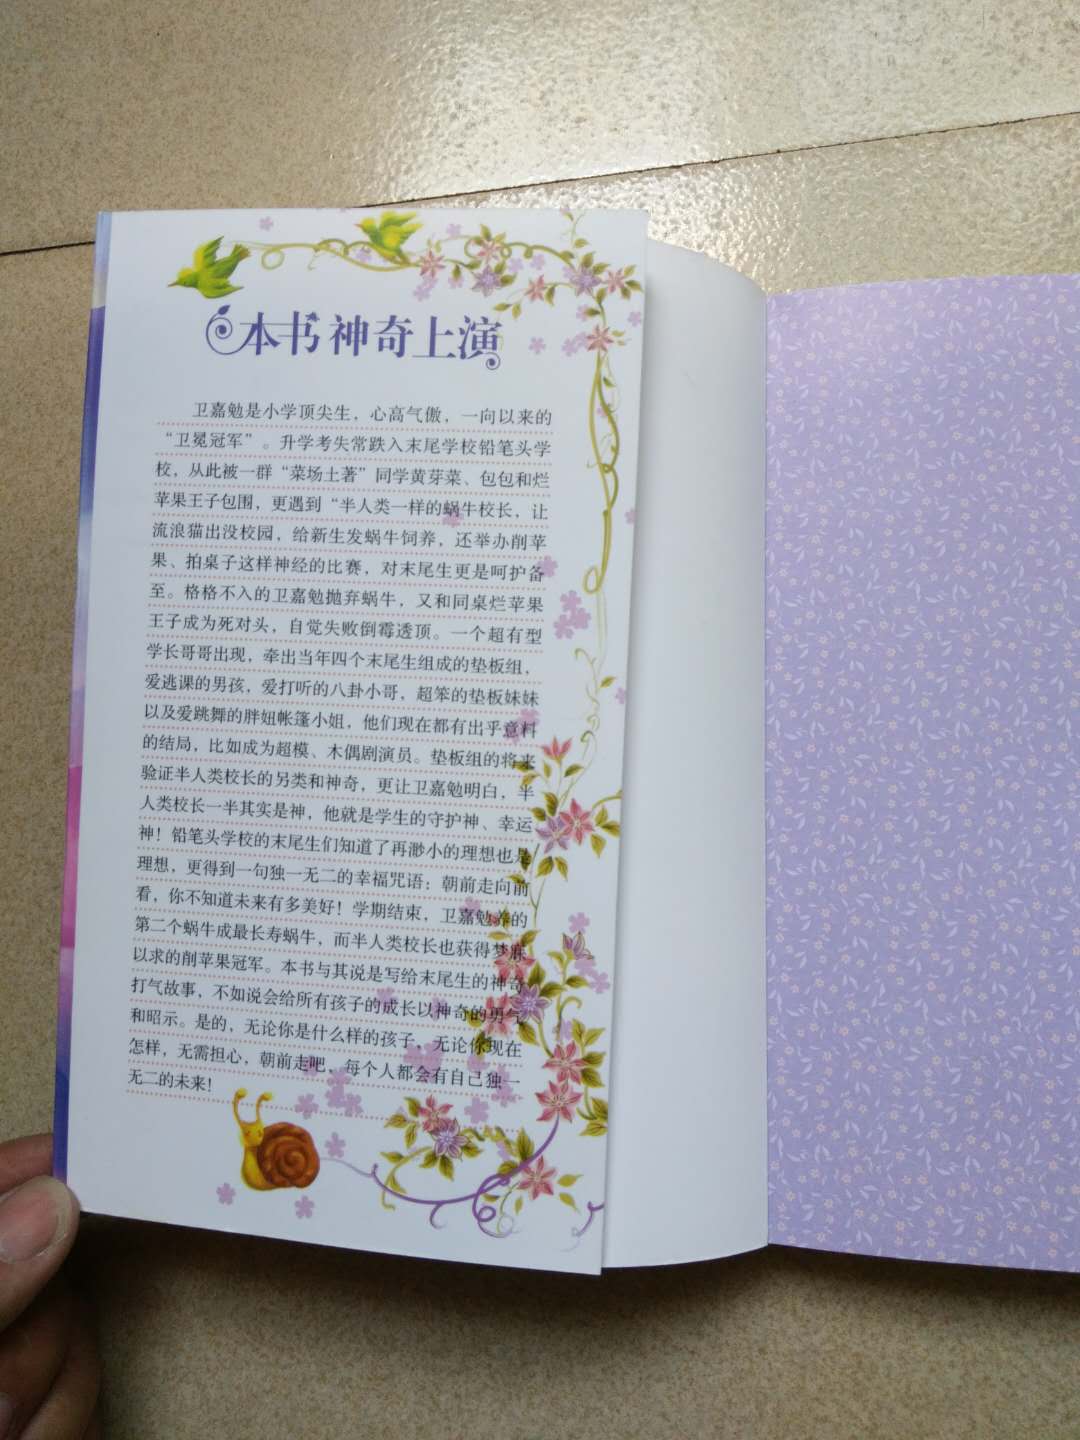 本书神奇上演
卫嘉勉是小学顶尖生，心高气傲，一向以来的
“卫冕冠军”。升学考失常跌入末尾学校铅笔头学
校，从此被一群“菜场土著”同学黄芽菜、包包和烂
苹果王子包围，更遇到“半人类一样的蜗牛校长，让
流浪猫出没校园，给新生发蜗牛饲养，还举办削苹
果、拍桌子这样神经的比赛，对末尾生更是呵护备
至。格格不入的卫嘉勉抛弃蜗牛，又和同桌烂苹果
王子成为死对头，自觉失败倒霉透顶。一个超有型
学长哥哥出现，牵出当年四个末尾生组成的垫板组，
爱逃课的男孩，爱打听的八卦小哥，超笨的垫板妹妹
以及爱跳舞的胖妞帐篷小姐，他们现在都有出乎意料
的结局，比如成为超模、木偶剧演员。垫板组的将来
验证半人类校长的另类和神奇，更让卫嘉勉明白，半
人类校长一半其实是神，他就是学生的守护神、幸运
神！铅笔头学校的末尾生们知道了再渺小的理想也是
理想，更得到一句独一无二的幸福咒语：朝前走向前
看，你不知道未来有多美好！学期结束，卫嘉勉养的
第二个蜗牛成最长寿蜗牛，而半人类校长也获得梦寐
以求的削苹果冠军。本书与其说是写给末尾生的神奇
打气故事，不如说会给所有孩子的成长以神奇的勇气
和昭示。是的，无论你是什么样的孩子，无论你现在
怎样，无需担心，朝前走吧，每个人都会有自己独一
无二的未来！